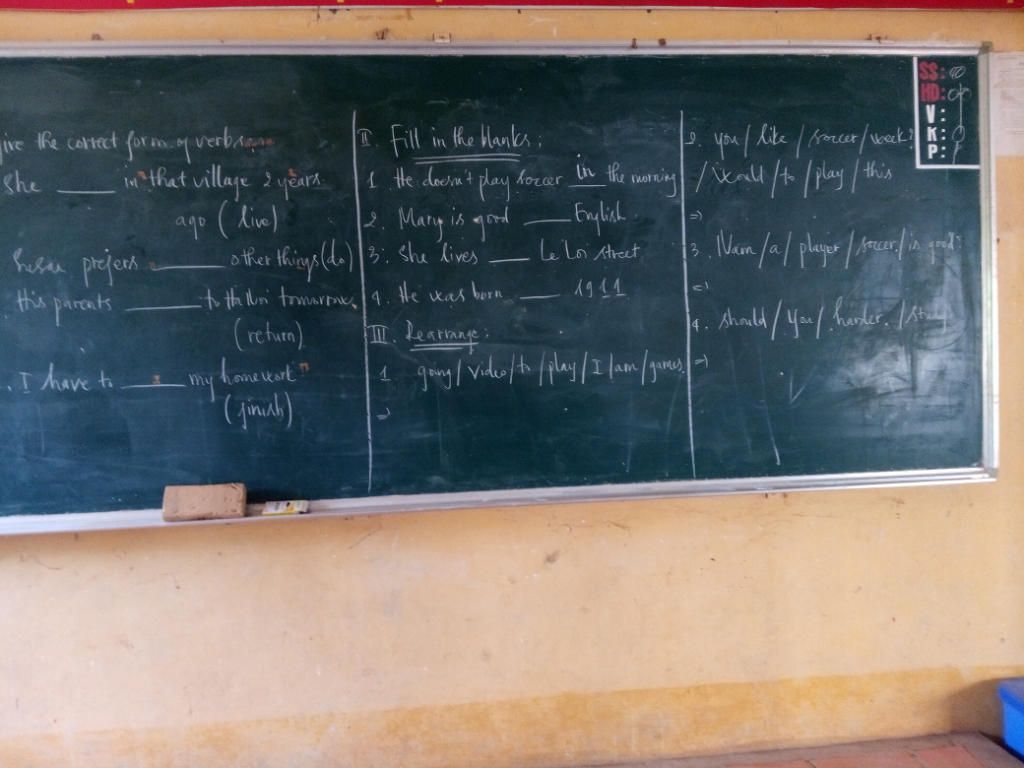 ive the correct form of verbs:
She ____ in that village 2 years
ago (live)
Susan prefers ____ other things (do)
His parents ____ to Ha Noi tomorrow.
(return)
. I have to ____ my homework
(finish)
II Fill in the blanks:
1. He doesn't play soccer in the morning
2. Mary is good ____ English
3. She lives ____ Le Loi street
4. He was born ____ 1911
III. Rearrange:
1 going / video / to / play / I / am / games
=>
2. you / like / soccer / week?
/ Would / to / play / this
=>
3. Nam / a / player / soccer / is good
=>
4. should / you / harder. / study
=>
SS:
HD:
V :
K :
P :